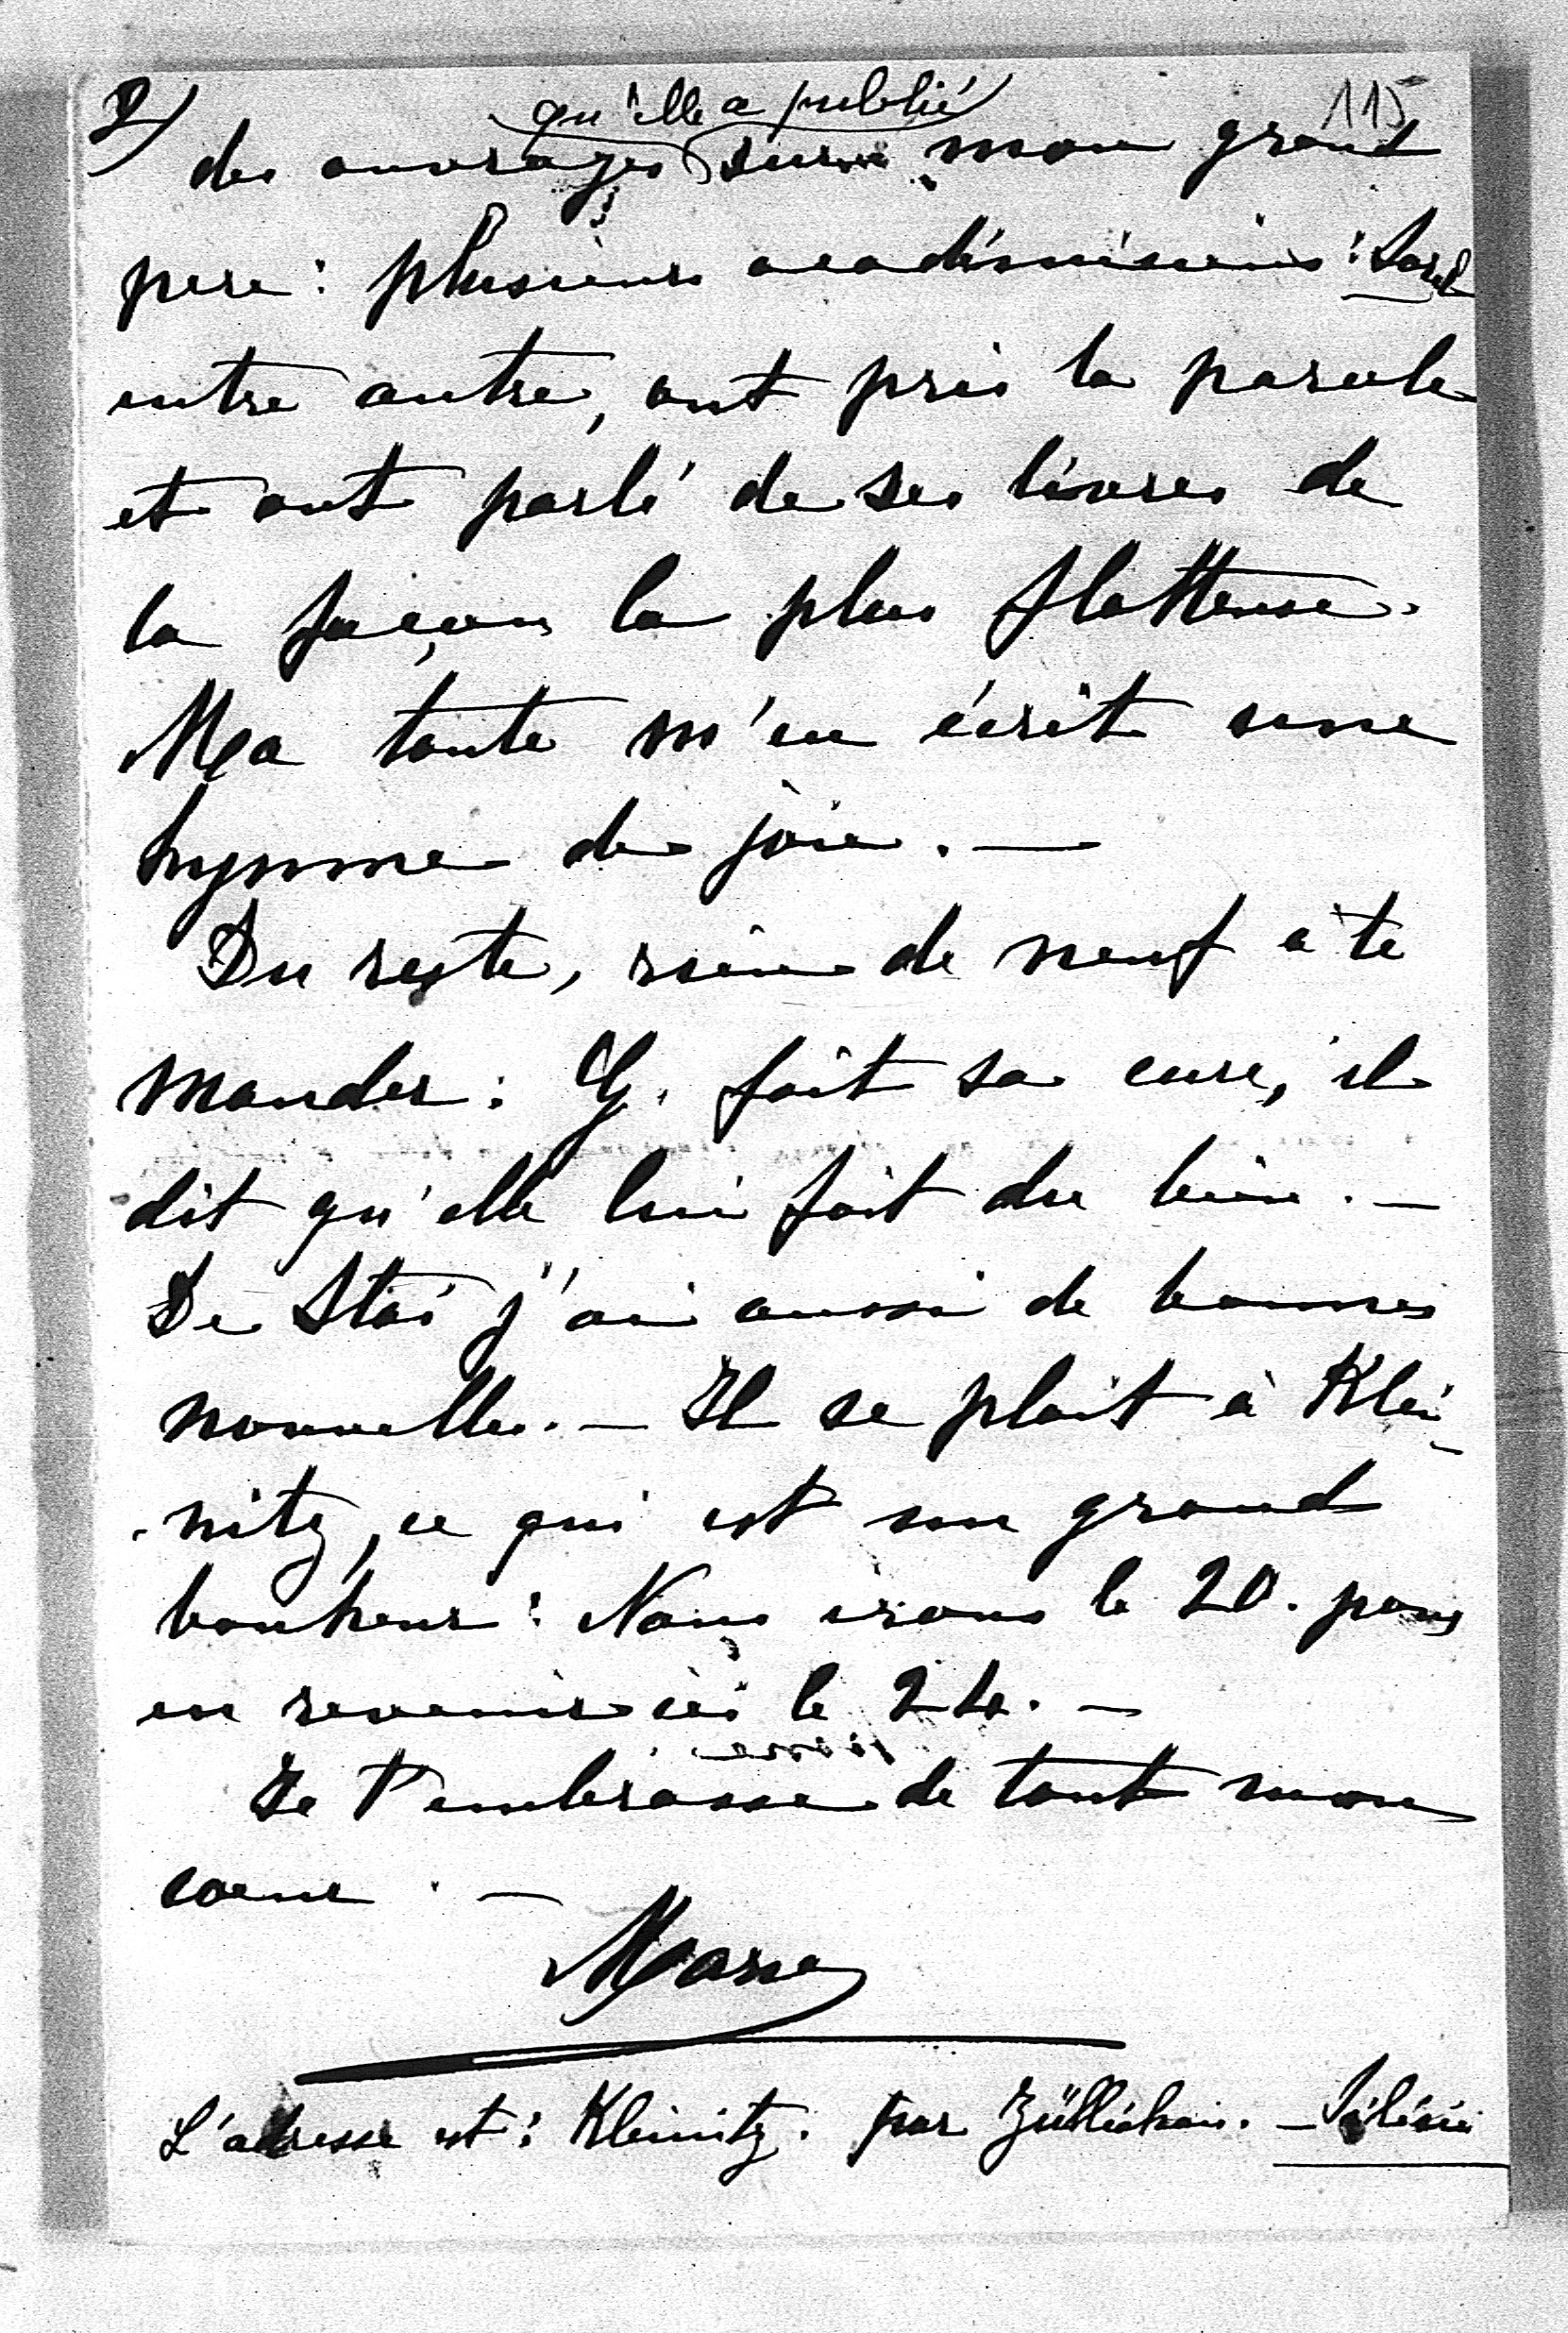 2) qu'elle a publié 115
des ouvrages sur mon grand
pere : plusieurs académiciens : Sorel
entre autre, ont pris la parole
et ont parlé de ses livres de
la façon la plus flatteuse.
Ma tante m'en écrit une
hymne de joie. —
Du reste, rien de neuf à te
mander : G. fait sa cure, il
dit qu'elle lui fait du bien. —
De Stas j'ai aussi de bonnes
nouvelles. — Il se plait à Klei-
-nitz, ce qui est un grand
bonheur : Nous irons le 20. pour
en revenir ici le 24. —
Je t'embrasse de tout mon
coeur. —
Marie
L'adresse est : Kleinitz. par Züllichau. — Silésie